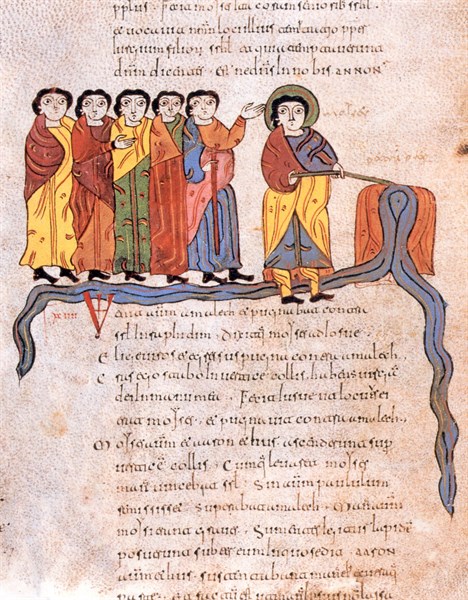 pplus · Fecit moses ita coram senioribus srhl
et uocauit nomen loci illius temtatjo propter
iurgium filiorum srhl et quia temtauerunt
dnm dicentes · est ne dns in nobis annon ·
moses
xviii Venit autem amalech et pugnabat contra
srhl in rafidim · dixitq moses ad iosue
Elige uiros et egressus pugna contra amalech ·
Cras ego stabo in uertice collis habens uirga
dei in manu mea · Fecit iosue ut locutus ei
erat moses et pugnauit contra amalech ·
Moses autem et aaron et hur ascenderunt sup
uertice collis · Cumq leuaret moses
manus uincebat srhl · Sin autem paululum
remisisset · superabat amalech · Manus autem
moysi erant graues · Sumentes igitur lapide
posuerunt subter eum in quo sedit · aaron
autem et hur sustentabant manus eius ex utraq
parte · et factum est ut manus ipsius non lassa